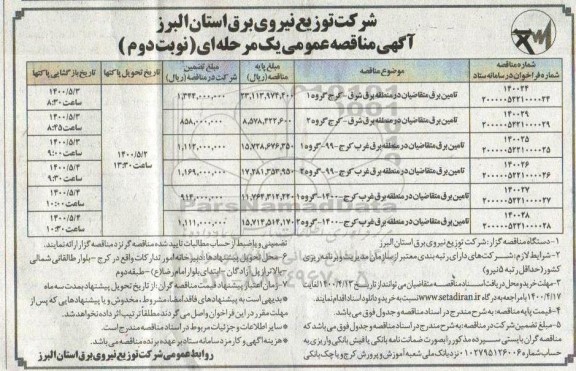 شرکت توزیع نیروی برق استان البرز
آگهی مناقصه عمومی یک مرحله ای (نوبت دوم)
شماره مناقصه
شماره فراخوان در سامانه ستاد
موضوع مناقصه
مبلغ پایه مناقصه (ریال)
مبلغ تضمین شرکت در مناقصه (ریال)
تاریخ تحویل پاکتها
تاریخ بازگشایی پاکتها
۱۴۰۰-۲۴
۲۰۰۰۰۰۵۲۲۱۰۰۰۰۲۴
تامین برق متقاضیان در منطقه برق شرق - کرج گروه ۱
۲۳,۱۱۳,۹۷۴,۲۰۰
۱,۳۴۴,۰۰۰,۰۰۰
۱۴۰۰/۵/۲
ساعت ۱۳:۳۰
۱۴۰۰/۵/۳
ساعت ۸:۳۰
۱۴۰۰-۲۹
۲۰۰۰۰۰۵۲۲۱۰۰۰۰۲۹
تامین برق متقاضیان در منطقه برق شرق - کرج گروه ۲
۸,۵۷۸,۴۲۲,۶۰۰
۸۵۸,۰۰۰,۰۰۰
۱۴۰۰/۵/۳
ساعت ۸:۴۵
۱۴۰۰-۲۵
۲۰۰۰۰۰۵۲۲۱۰۰۰۰۲۵
تامین برق متقاضیان در منطقه برق غرب کرج -۹۹- گروه ۱
۱۵,۷۲۸,۶۷۶,۳۵۰
۱,۱۱۲,۰۰۰,۰۰۰
۱۴۰۰/۵/۳
ساعت ۹:۰۰
۱۴۰۰-۲۶
۲۰۰۰۰۰۵۲۲۱۰۰۰۰۲۶
تامین برق متقاضیان در منطقه برق غرب کرج -۹۹- گروه ۲
۱۷,۲۸۱,۳۵۳,۹۵۰
۱,۱۶۹,۰۰۰,۰۰۰
۱۴۰۰/۵/۴
ساعت ۹:۳۰
۱۴۰۰-۲۷
۲۰۰۰۰۰۵۲۲۱۰۰۰۰۲۷
تامین برق متقاضیان در منطقه برق غرب کرج -۱۴۰۰- گروه ۱
۱۱,۷۶۴,۳۱۲,۲۲۰
۹۱۴,۰۰۰,۰۰۰
۱۴۰۰/۵/۴
ساعت ۱۰:۰۰
۱۴۰۰-۲۸
۲۰۰۰۰۰۵۲۲۱۰۰۰۰۲۸
تامین برق متقاضیان در منطقه برق غرب کرج -۱۴۰۰- گروه ۲
۱۵,۷۱۲,۵۱۲,۱۷۰
۱,۱۱۱,۰۰۰,۰۰۰
۱۴۰۰/۵/۴
ساعت ۱۰:۳۰
۱- دستگاه مناقصه گزار : شرکت توزیع نیروی برق استان البرز
۲- شرایط لازم : شرکت های دارای رتبه بندی معتبر از سازمان مدیریت و برنامه ریزی
کشور (حداقل رتبه ۵ نیرو)
۳- مهلت خرید و محل دریافت اسناد مناقصه : متقاضیان می توانند از تاریخ ۱۴۰۰/۴/۱۳ لغایت
۱۴۰۰/۴/۱۷ با مراجعه درگاه www.setadiran.ir نسبت به خرید و دانلود اسناد اقدام نمایند.
۴- قیمت پایه مناقصه : به شرح مندرج در اسناد مناقصه و جدول فوق می باشد.
۵- مبلغ تضمین شرکت در مناقصه : به شرح مندرج در اسناد مناقصه و جدول فوق می باشد که
مناقصه گران بایستی سپرده مذکور را به صورت ضمانت نامه بانکی یا فیش بانکی واریزی به
حساب شماره ۰۱۰۲۷۹۵۱۲۶۰۰۶ نزد بانک ملی شعبه آموزش و پرورش کرج و یا چک بانکی
تضمینی و یا ضبط از حساب مطالبات تایید شده مناقصه گر نزد مناقصه گزار ارائه نمایند.
۶- محل تحویل پیشنهادها : دبیرخانه امور تدارکات واقع در کرج - بلوار طالقانی شمالی
- بالاتر از پل آزادگان - ابتدای بلوار امام رضا (ع) - طبقه دوم
۷- زمان اعتبار پیشنهاد قیمت مناقصه گران : از تاریخ تحویل پیشنهاد بمدت سه ماه
* بدیهی است به پیشنهادهای فاقد امضاء، مشروط، مخدوش و یا پیشنهادهایی که پس از
مهلت مقرر در این فراخوان واصل می گردند مطلقا ترتیب اثر داده نخواهد شد.
* سایر اطلاعات و جزئیات مربوط در اسناد مناقصه مندرج است.
* هزینه آگهی و کارمزد سامانه ستاد بر عهده برنده مناقصه می باشد.
روابط عمومی شرکت توزیع نیروی برق استان البرز